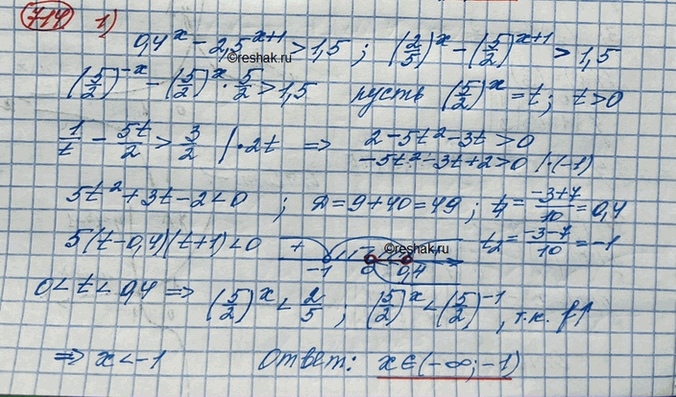 714 1)
0,4^x - 2,5^{x+1} > 1,5 ; (2/5)^x - (5/2)^{x+1} > 1,5
©reshak.ru
(5/2)^{-x} - (5/2)^x · 5/2 > 1,5 пусть (5/2)^x = t; t>0
1/t - 5t/2 > 3/2 | ·2t ⇒ 2-5t²-3t>0
-5t²-3t+2>0 |·(-1)
5t²+3t-2<0 ; D=9+40=49; t₁=(-3+7)/10=0,4
5(t-0,4)(t+1)<0 + - ©reshak.ru + t₂=(-3-7)/10=-1
-1 0 0,4
0<t<0,4 ⇒ (5/2)^x < 2/5 ; (5/2)^x < (5/2)^{-1}, т.к. f↑
⇒ x<-1 Ответ: x∈(-∞;-1)